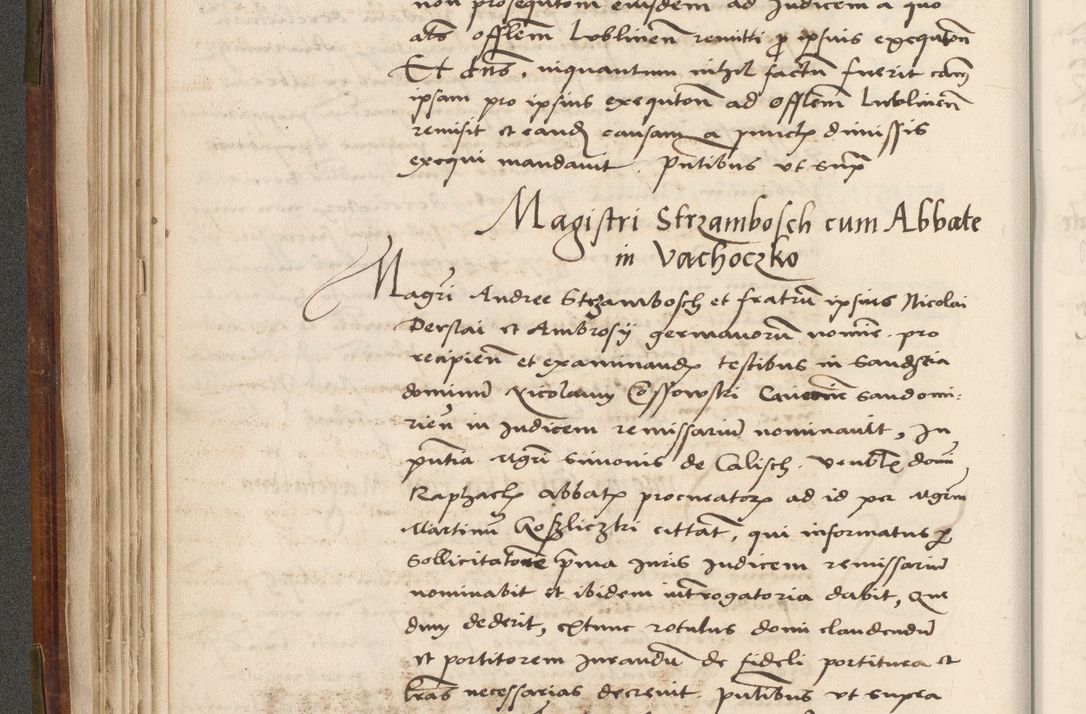 non prosequtom eiusdem ad Iudicem a quo
ats offlem Lublinen remitti p ipsius exequton
Et dns, inquantum nihil factu fuerit eam
ipsam pro ipsius exequton ad offlem Lublinen
remisit et eand causam a punct dimissis
exequi mandavit. Pntibus ut supra
Magistri Strzambosch cum Abbate
in Vachoczko
Magri Andree Strzambosch et fratru ipsius Nicolai
Derslai et Ambrosij germanoru nomine pro
recipien et examinand testibus in Sandstia
dominu Nicolaum Cossowski Canonic Sandomi:
rien in Iudicem remissariu nominavit, In
pntia Mgri Simonis de Calisch. venblis domi
Raphaelis abbatis procuratoris ad id per Mgrm
Martinu Koszliczki cittat, qui informatus p
Sollicitatore pma Iuris Iudicem remissariu
nominabit et ibidem introgatoria dabit, Que
dum dederit, extunc rotulus domi claudendu
et portitorem iurandu de fideli portitura et
lras necessarias decrevit. Pntibus ut supra